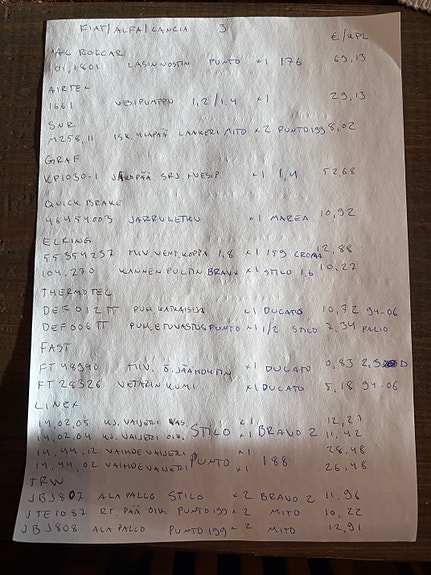 FIAT/ALFA/LANCIA 3
€/KPL
AC ROLCAR
01,1801 LASINNOSTIN PUNTO ×1 176 69,13
AIRTEX
1661 VESIPUMPPU 1,2/1,4 ×1 29,13
SNR
M258,11 ISK.YLÄPÄÄ LAAKERI MITO ×2 PUNTO199 8,02
GRAF
KP1030-1 JAKOPÄÄ SRJ +VESIP. ×1 1,4 52,68
QUICK BRAKE
46454003 JARRULETKU ×1 MAREA 10,92
ELRING
55354237 IMU.VENT.KOPPA 1,8 ×1 159 CROMA 12,88
104,270 KANNEN PULTIN BRAVA ×1 STILO 1,6 10,27
THERMOTEC
DEF012TT PUH.KATKAISIJA ×1 DUCATO 10,72 94-06
DEF006TT PUH.ETUVASTUS PUNTO ×1 1/2 STILO 7,34 PALIO
FAST
FT48940 Ö.JÄÄHDYTIN ×1 DUCATO 0,83 2,5 D
FT28326 VETARIN KUMI ×1 DUCATO 5,18 94-06
LINEX
14,02,05 KJ.VAIJERI VAS. STILO ×1 BRAVO 2 12,27
14,02,04 KJ.VAIJERI OIK. ×1 11,42
14,44,12 VAIHDEVAIJERI PUNTO ×1 188 28,48
14,44,02 VAIHDEVAIJERI ×1 26,48
TRW
JBJ807 ALAPALLO STILO ×2 BRAVO 2 11,96
JTE1082 RT.PÄÄ OIK. PUNTO199 ×2 MITO 10,22
JBJ808 ALAPALLO PUNTO199 ×2 MITO 12,91